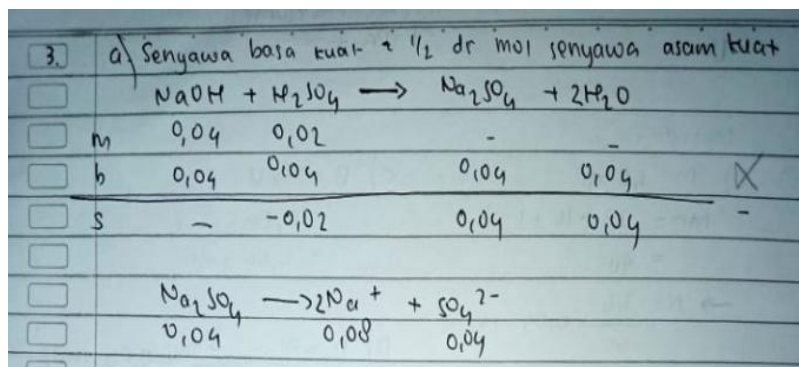 3. a) Senyawa basa kuat = 1/2 dr mol senyawa asam kuat
NaOH + H₂SO₄ → Na₂SO₄ + 2H₂O
m 0,04 0,02 - -
b 0,04 0,04 0,04 0,04
s - -0,02 0,04 0,04 -
Na₂SO₄ → 2Na⁺ + SO₄²⁻
0,04 0,08 0,04